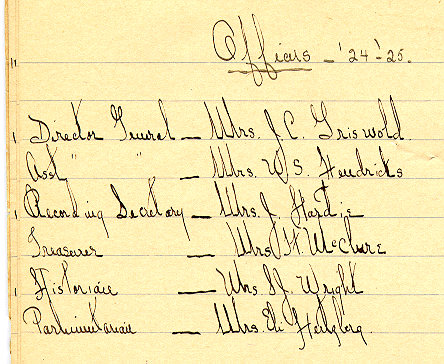 Officers - '24-'25.
Director General - Mrs. J. C. Griswold
Asst " " - Mrs. W. S. Hendricks
Recording Secretary - Mrs. J. Hardie
Treasurer - Mrs. H. McClure
Historian - Mrs. S. J. Wright
Parlimentarian - Mrs. Eli Hertzberg.